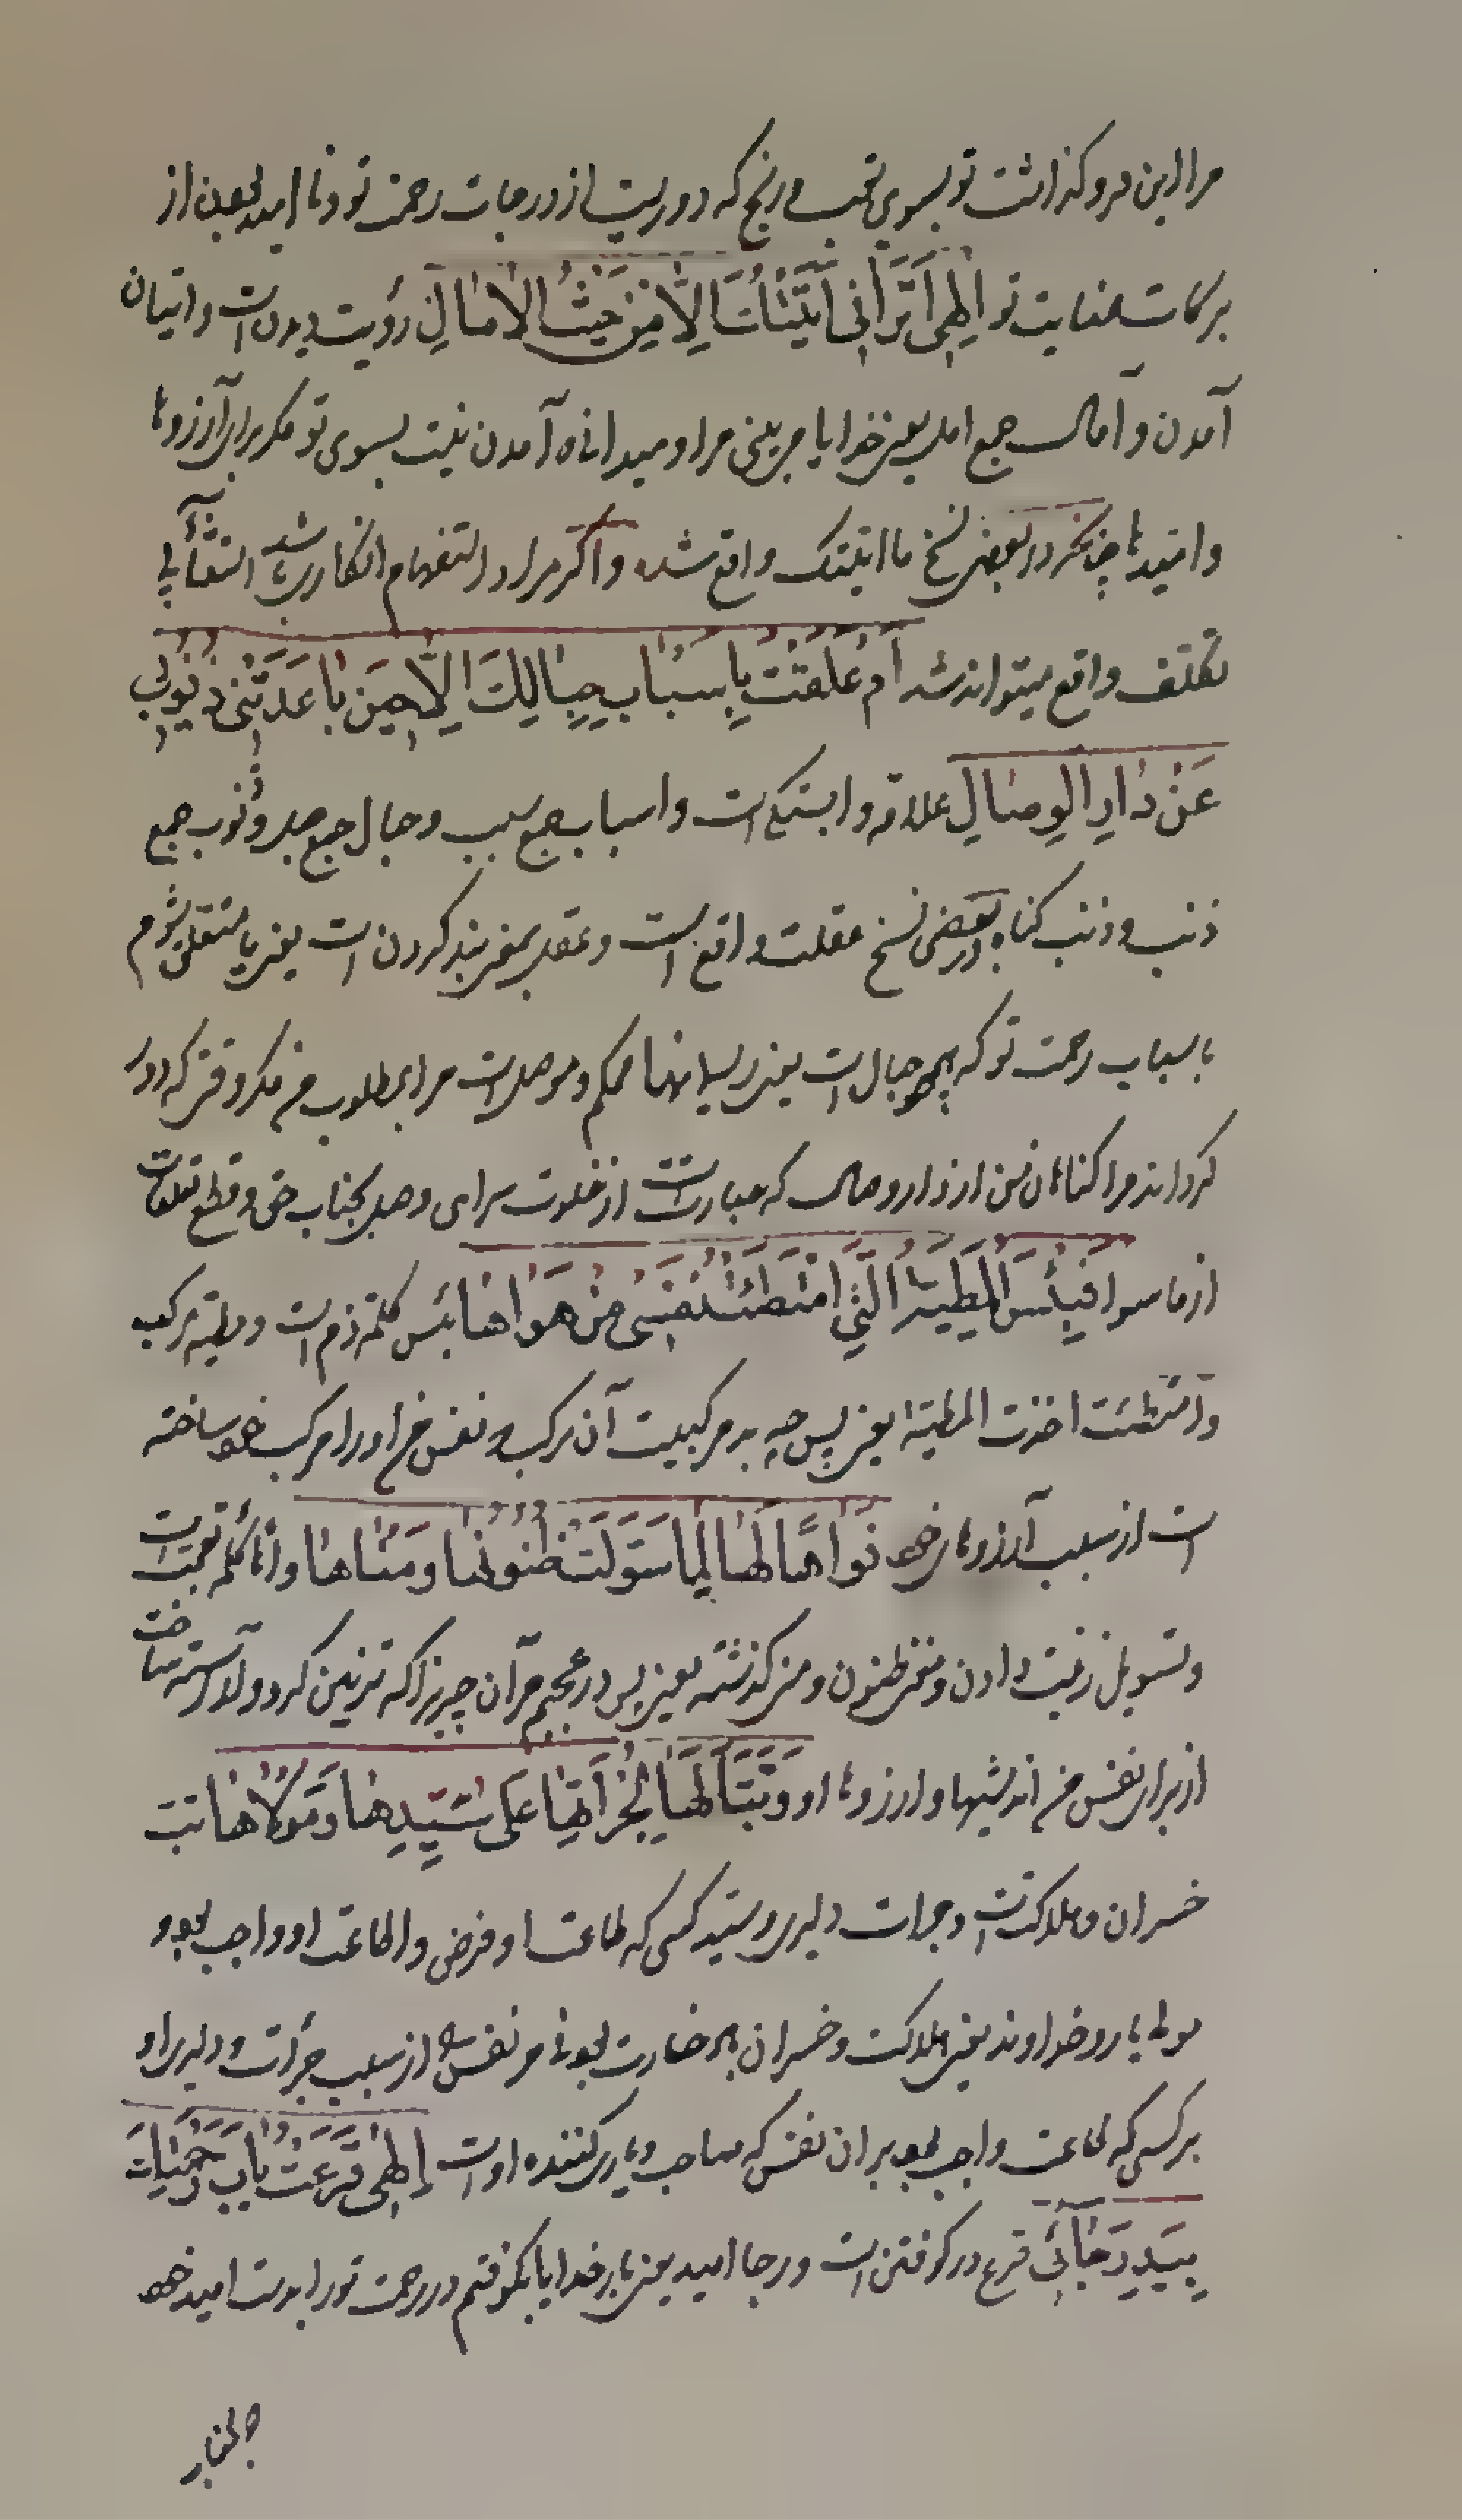 مرا این فرو گذاشت تو بسوی تعب و رنج که دوریست از درجات رحمت تو و نا امید بودن از
برکات عنایت تو اِلٰهی اَتَرَانِی اَتَیْتُكَ اِلَّا مِنْ حَیْثُ الْاٰمٰالِ رؤیت دیدن است و اتیان
آمدن و آمال جمع امل یعنی خدایا می بینی مرا و میدانی که آمدن نیست بسوی تو مگر برای آرزوها
و امیدها چنانکه در بعضی نسخ ما اتیتک واقع شده و اگر مراد استفهام انکاری باشد استثنا بی
تکلف واقع میتواند شد اَمْ عَلَقْتُ بِاَسْبَابِ حِبٰالِكَ اِلَّا حِیْنَ بٰاعَدَتْنِی ذُنُوْبِی
عَنْ دٰارِ الْوِصٰالِ علاقه وابستگی است و اسباب جمع سبب و حبال جمع حبل و ذنوب جمع
ذنب و ذنب گناه و در بعضی نسخ عقلت واقع است و عقد بمعنی بند کردن است یعنی یا متعلق شوم
باسباب رحمت تو که همچو حبال است یعنی ریسمانها محکم و موصل است مرا بمطلوب من مگر وقتی که دور
گرداند مرا گناهان من از دار وصال که عبارتست از خلوت سرای وصل بجناب حق و قطع تعلقات
از ما سوا فَبِئْسَ الْمَطِیَّةُ الَّتِی امْتَطَئَتْ نَفْسِی مِنْ هَوٰاهٰا بئس کلمه ذم است و مطیه مرکب
و امتطئت اخذت المطیة یعنی پس چه بد مرکبیست آن مرکب که نفس من او را مرکب خود ساخته
است از سبب آرزوهای خود فَوٰاهًا لَهٰا لِمٰا سَوَّلَتْ ظُنُوْنُهٰا وَ مُنٰاهٰا واها کلمه تعجب است
و تسویل زینت دادن و ظنون و منی گذشته یعنی پس در عجبم مر آن چیز را که تزیین کرد و آراسته ساخت
از برای نفس من اندیشها و ارزوهای او وَ تَبًّا لَهٰا لِجُرْاَتِهٰا عَلٰی سَیِّدِهٰا وَ مَوْلٰاهٰا تب
خسران و هلاکت است و جرات دلیری و سید کسی که طاعت او فرض و اطاعت او واجب بود و
مولی یار و خداوند یعنی هلاکت و خسران به خسارت بود مر نفس را از سبب جرأت و دلیری او
بر کسی که طاعت واجب بود بران نفس که صاحب و یاری کننده اوست اِلٰهی قَرَعْتُ بٰابَ رَحْمَتِكَ
بِیَدِ رَجٰائِی قرع در کوفتن است و رجا امید یعنی بار خدایا بکوفتم در رحمت تو را بدست امید خود